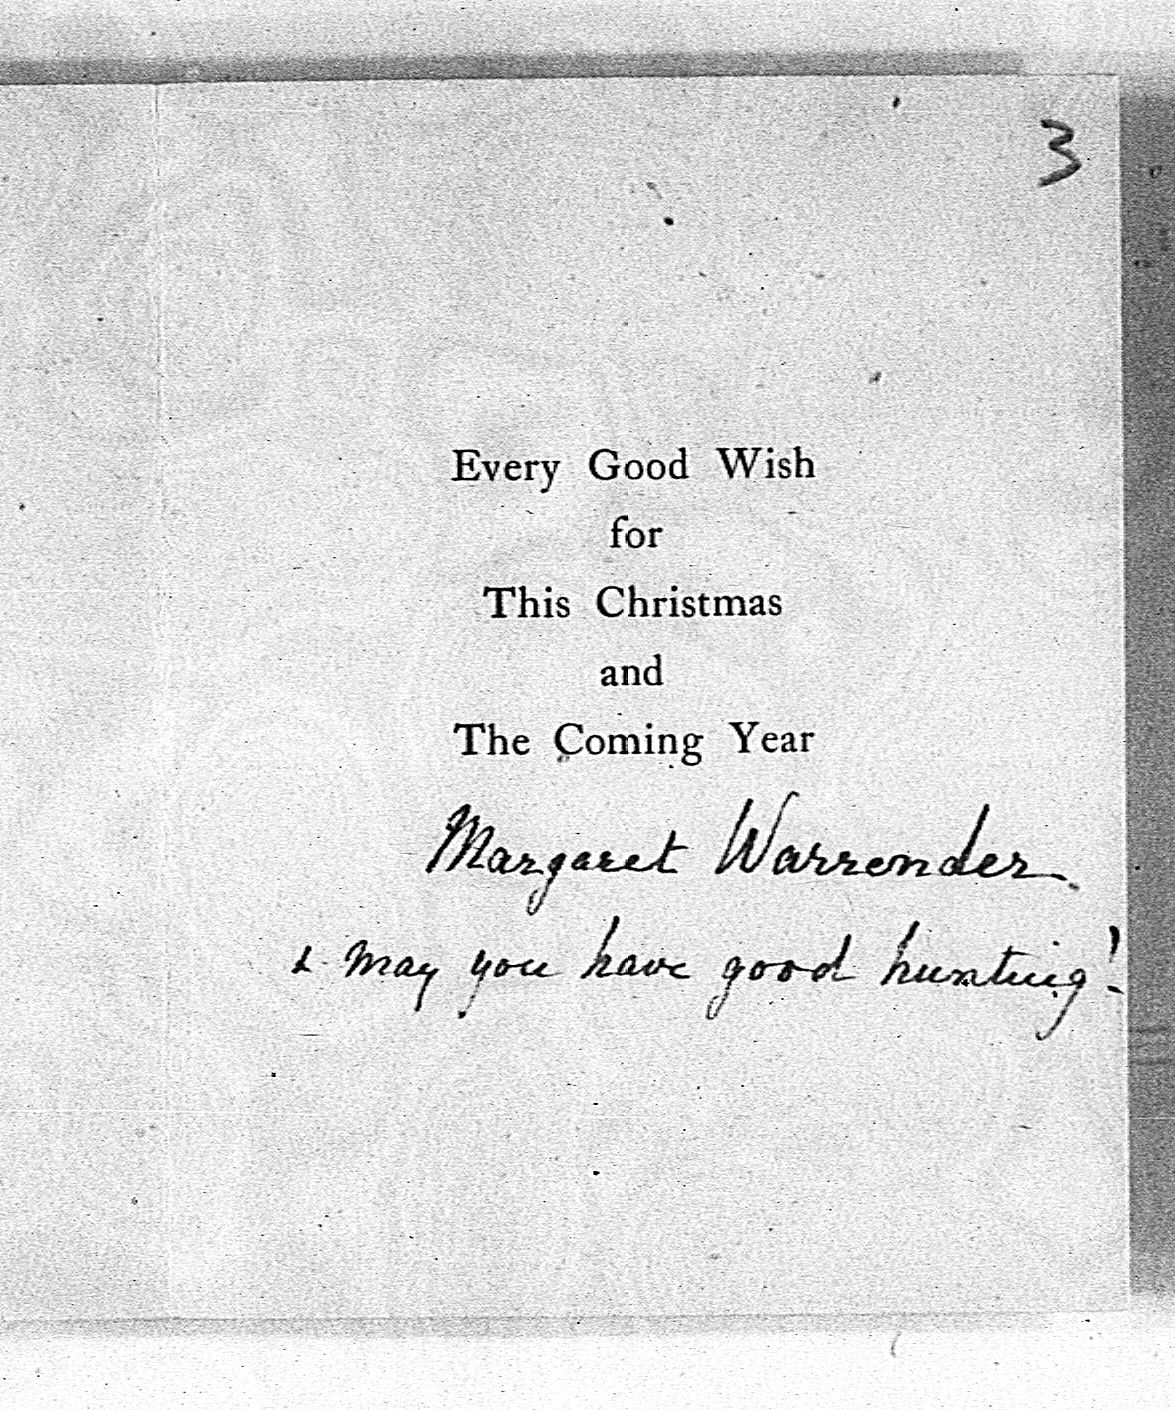 3
Every Good Wish
for
This Christmas
and
The Coming Year
Margaret Warrender.
& may you have good hunting!